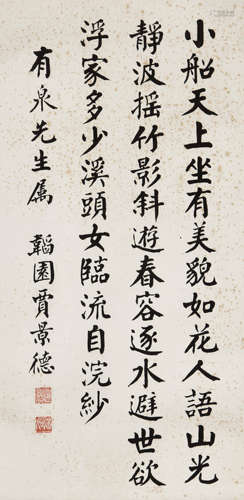 小船天上坐有美貌如花人語山光
靜波摇竹影斜遊春容逐水避世欲
浮家多少溪頭女臨流自浣紗
有泉先生属 韜園賈景德